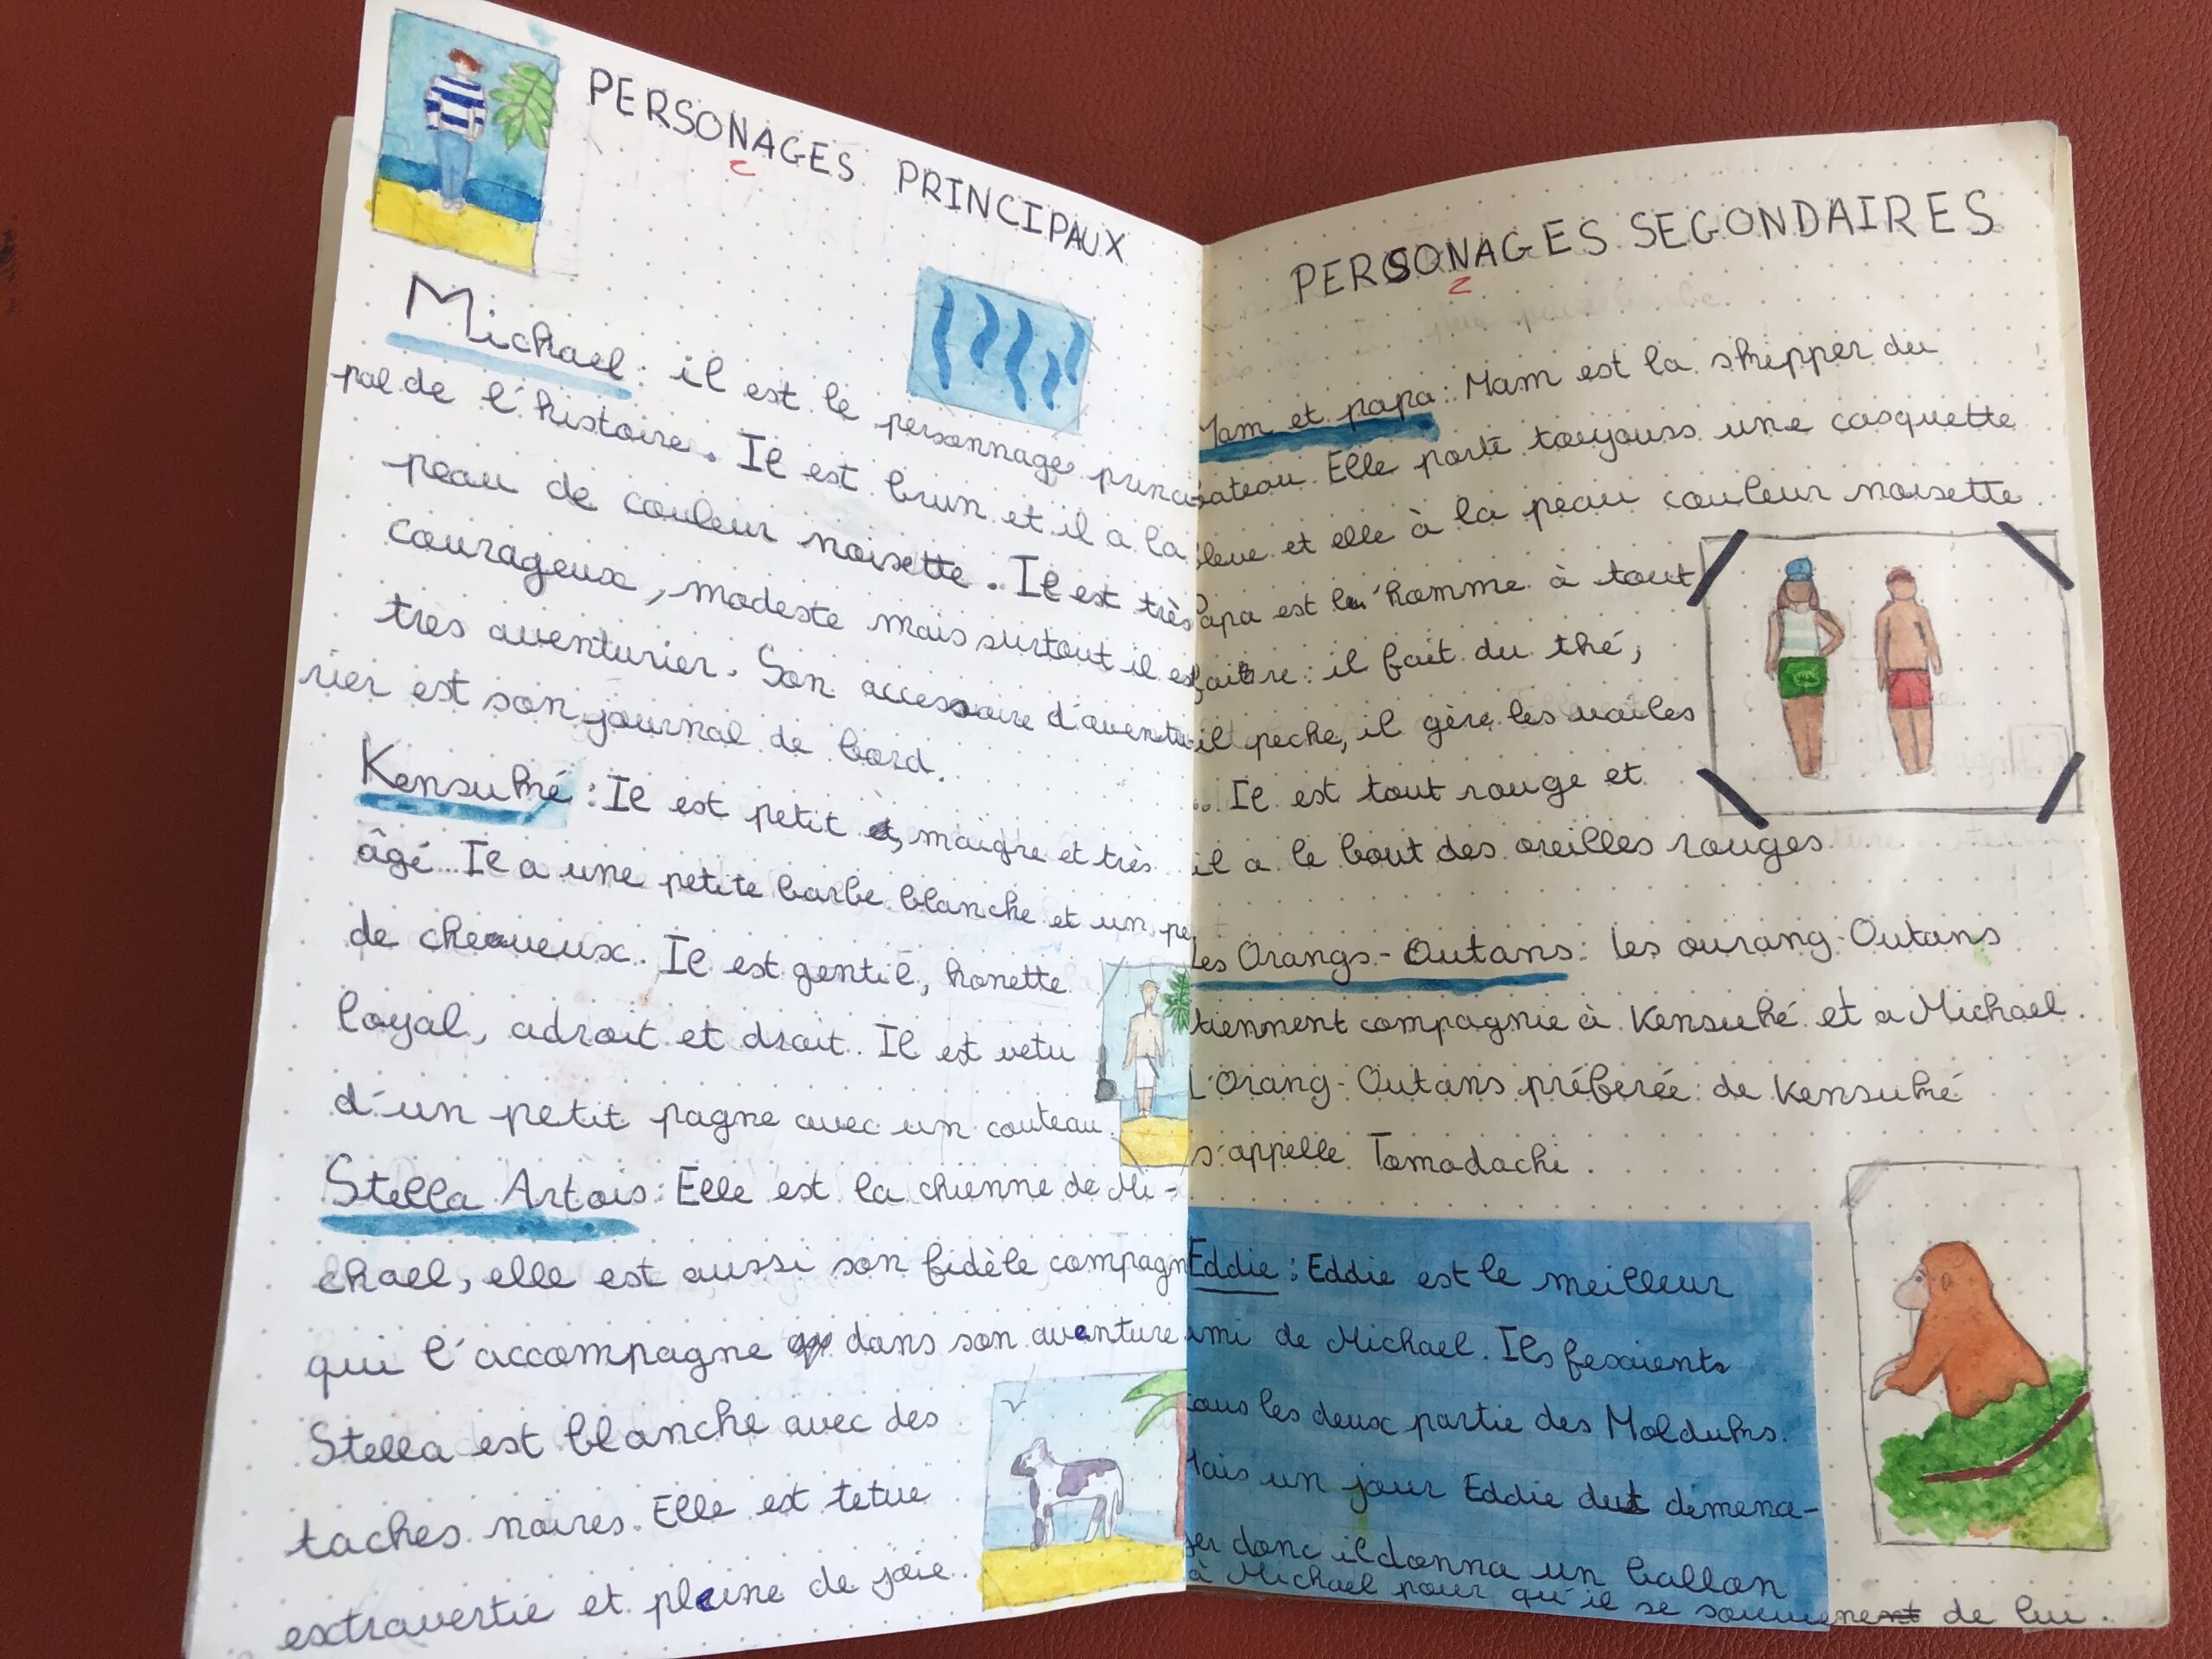 PERSONAGES PRINCIPAUX
Michael : il est le personnage princi-
pal de l'histoire. Il est brun et il a la
peau de couleur noisette. Il est très
courageux, modeste mais surtout il est
très aventurier. Son accessoire d'aventu-
rier est son journal de bord.
Kensuké : Il est petit, maigre et très
âgé. Il a une petite barbe blanche et un pe
de cheveux. Il est gentil, honette
loyal, adroit et droit. Il est vetu
d'un petit pagne avec un couteau.
Stella Artois : Elle est la chienne de Mi-
chael, elle est aussi son fidèle compagn
qui l'accompagne dans son aventure
Stella est blanche avec des
taches noires. Elle est tetue
extravertie et pleine de joie.
PERSONAGES SEGONDAIRES
Mam et papa : Mam est la skipper du
bateau. Elle porte toujours une casquette
bleue et elle à la peau couleur noisette
Papa est l'homme à tout
faire : il fait du thé,
il peche, il gère les voiles
... Il est tout rouge et
il a le bout des oreilles rouges.
Les Orangs-Outans : les ourang-Outans
tiennent compagnie à Kensuké et a Michael.
L'Orang-Outans préferée de Kensuké
s'appelle Tomodachi.
Eddie : Eddie est le meilleur
ami de Michael. Ils fesaients
tous les deux partie des Molduks.
Mais un jour Eddie dut démena-
ger donc il donna un ballon
à Michael pour qu'il se souvienne de lui.